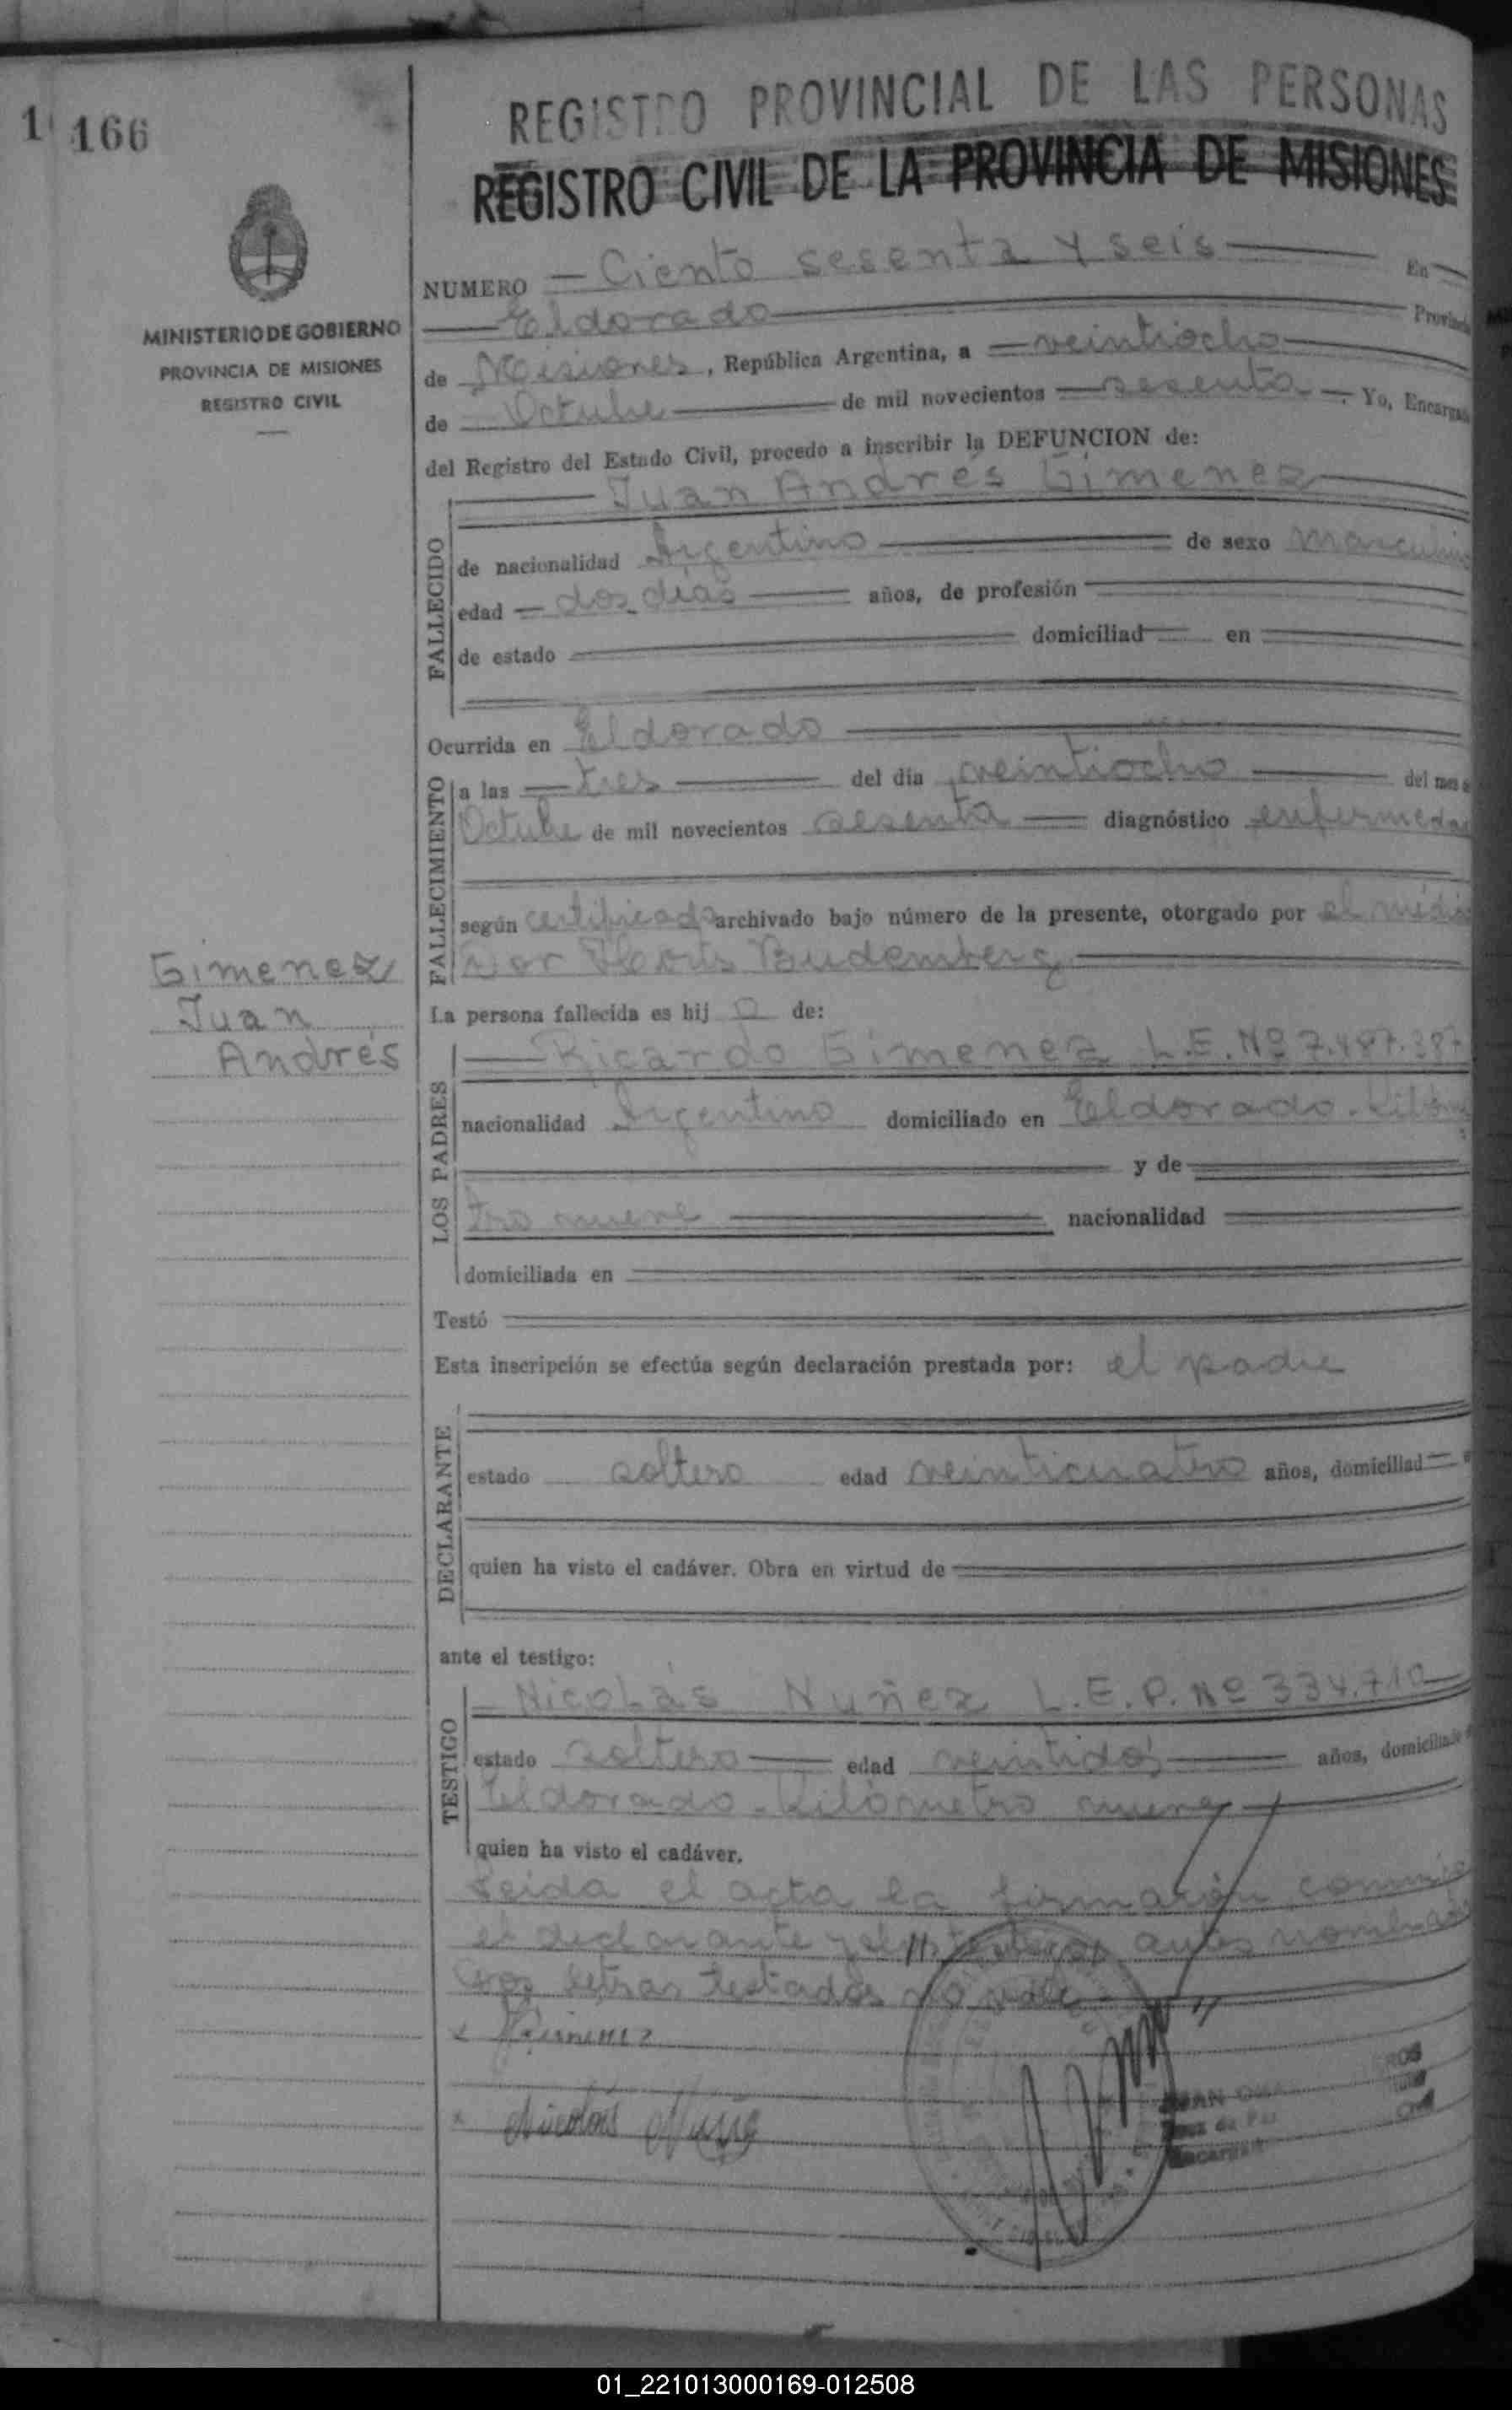 1 166
REGISTRO PROVINCIAL DE LAS PERSONAS
REGISTRO CIVIL DE LA PROVINCIA DE MISIONES
MINISTERIO DE GOBIERNO
PROVINCIA DE MISIONES
REGISTRO CIVIL
NUMERO Ciento sesenta y seis En
Eldorado Provincia
de Misiones, República Argentina, a veintiocho
de Octubre de mil novecientos sesenta. Yo, Encargado
del Registro del Estado Civil, procedo a inscribir la DEFUNCION de:
Juan Andrés Gimenez
FALLECIDO
de nacionalidad Argentino de sexo masculino
edad dos días años, de profesión
de estado domiciliad en
Ocurrida en Eldorado
FALLECIMIENTO
a las tres del día veintiocho del mes
Octubre de mil novecientos sesenta diagnóstico enfermedad
según certificado archivado bajo número de la presente, otorgado por el médico
Budemberg
Gimenez
Juan
Andrés
La persona fallecida es hij o de:
LOS PADRES
Ricardo Gimenez L.E. Nº 7.487.387
nacionalidad Argentino domiciliado en Eldorado. Kilóme
y de
tro nueve nacionalidad
domiciliada en
Testó
Esta inscripción se efectúa según declaración prestada por: el padre
DECLARANTE
estado soltero edad veinticuatro años, domiciliad
quien ha visto el cadáver. Obra en virtud de
ante el testigo:
TESTIGO
Nicolás Nuñez L.E.P. Nº 334.710
estado soltero edad veintidos años, domiciliado
Eldorado. Kilómetro nueve
quien ha visto el cadáver.
Leida el acta la firmarón conmigo
el declarante y el testigo antes nombrados
letras testadas no vale
Gimenez
Nicolás Nuñez
JUAN
Juez de Paz
Encargado
Civil
01_221013000169-012508